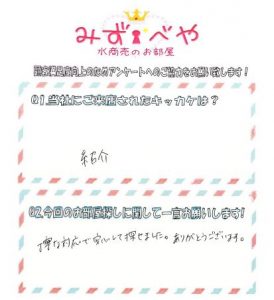 みずべや
水商売のお部屋
顧客満足度向上のためアンケートへのご協力をお願い致します！
Q1.当社にご来店されたキッカケは？
紹介
Q2.今回のお部屋探しに関して一言お願いします！
丁寧な対応で安心して探せました。ありがとうございます。